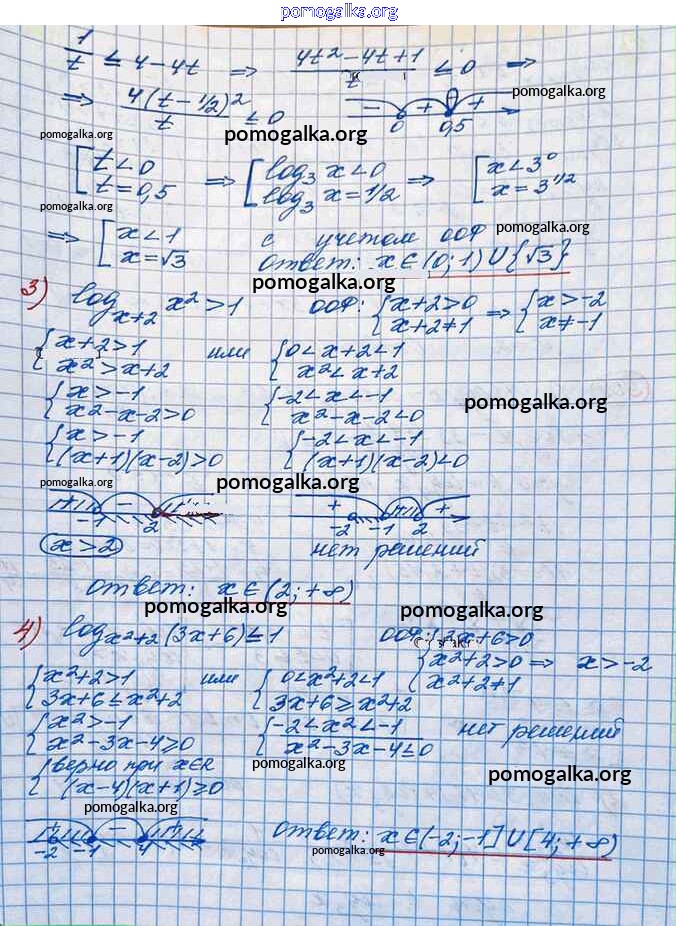 pomogalka.org
1/t ≤ 4-4t ⇒ (4t²-4t+1)/t ≤ 0 ⇒
pomogalka.org
⇒ 4(t-1/2)²/t ≤ 0 - + + 0 0,5
pomogalka.org pomogalka.org
[t<0 t=0,5 ⇒ [log₃ x<0 log₃ x=1/2 ⇒ [x<3⁰ x=3^1/2
pomogalka.org pomogalka.org
⇒ [x<1 x=√3 с учетом ООФ
ответ: x∈(0;1)∪{√3}
pomogalka.org
3) log_{x+2} x²>1 ООФ: {x+2>0 x+2≠1 ⇒ {x>-2 x≠-1
{x+2>1 x²>x+2 или {0<x+2<1 x²<x+2
{x>-1 x²-x-2>0 {-2<x<-1 x²-x-2<0
pomogalka.org
{x>-1 (x+1)(x-2)>0 {-2<x<-1 (x+1)(x-2)<0
pomogalka.org pomogalka.org
+ - + -1 2 + - + -2 -1 2
x>2 нет решений
ответ: x∈(2;+∞)
pomogalka.org pomogalka.org
4) log_{x²+2}(3x+6)≤1 ООФ: {3x+6>0 x²+2>0 x²+2≠1 ⇒ x>-2
{x²+2>1 3x+6≤x²+2 или {0<x²+2<1 3x+6≥x²+2
{x²>-1 x²-3x-4≥0 {-2<x²<-1 x²-3x-4≤0 нет решений
pomogalka.org
{верно при x∈R (x-4)(x+1)≥0
pomogalka.org
pomogalka.org
+ - + -2 -1 4 ответ: x∈(-2;-1]∪[4;+∞)
pomogalka.org